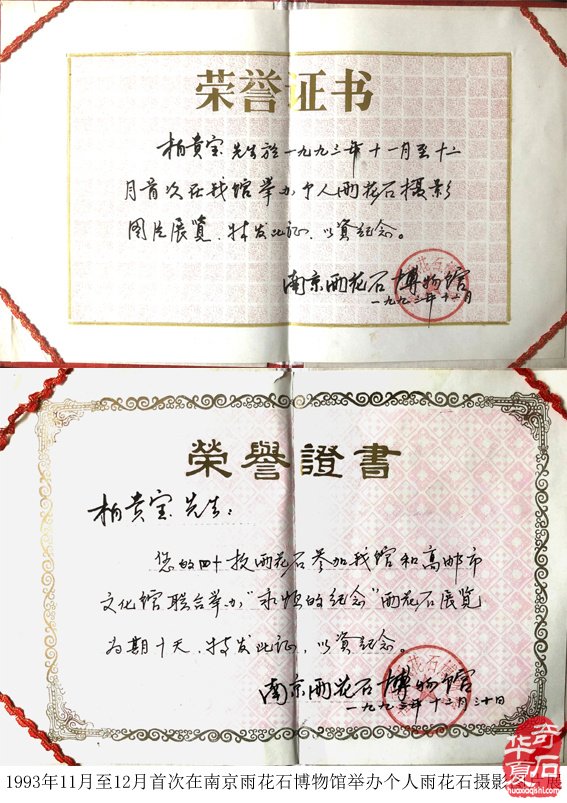 荣誉证书
柏贵宝先生於一九九三年十一月至十二
月首次在我馆举办个人雨花石摄影
图片展览、特发此证、以资纪念。
南京雨花石博物馆
一九九三年十一月
榮譽證書
柏贵宝先生：
您的四十枚雨花石参加我馆和高邮市
文化馆联合举办"永恒的纪念"雨花石展览
为期十天、特发此证、以资纪念。
南京雨花石博物馆
一九九三年十二月三十日
奇石
华夏
huaxiaqishi.com
1993年11月至12月首次在南京雨花石博物馆举办个人雨花石摄影 展